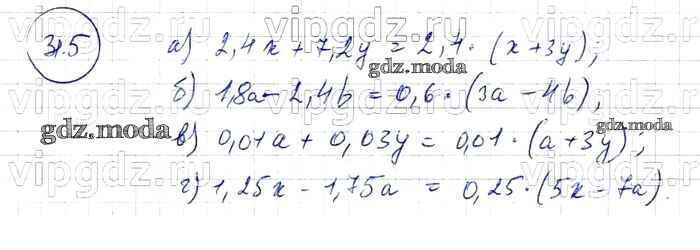 31.5
а) 2,4x + 7,2y = 2,4 · (x+3y),
б) 1,8a - 2,4b = 0,6 · (3a - 4b),
в) 0,01a + 0,03y = 0,01 · (a+3y),
г) 1,25x - 1,75a = 0,25 · (5x - 7a).
vipgdz.ru vipgdz.ru vipgdz.ru
gdz.moda
gdz.moda
gdz.moda
vipgdz.ru vipgdz.ru vipgdz.ru